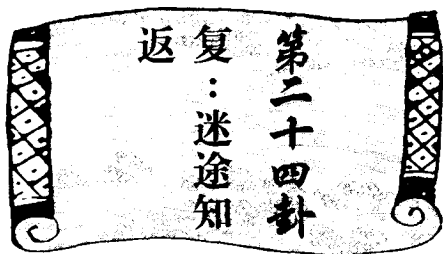 第二十四卦
复:迷途知
返